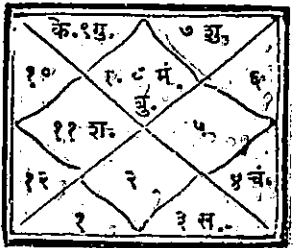 के.९गु. ७ शु.
१० ८ मं. ६
बु.
११ श. ५
१२ २ ४ चं.
१ ३